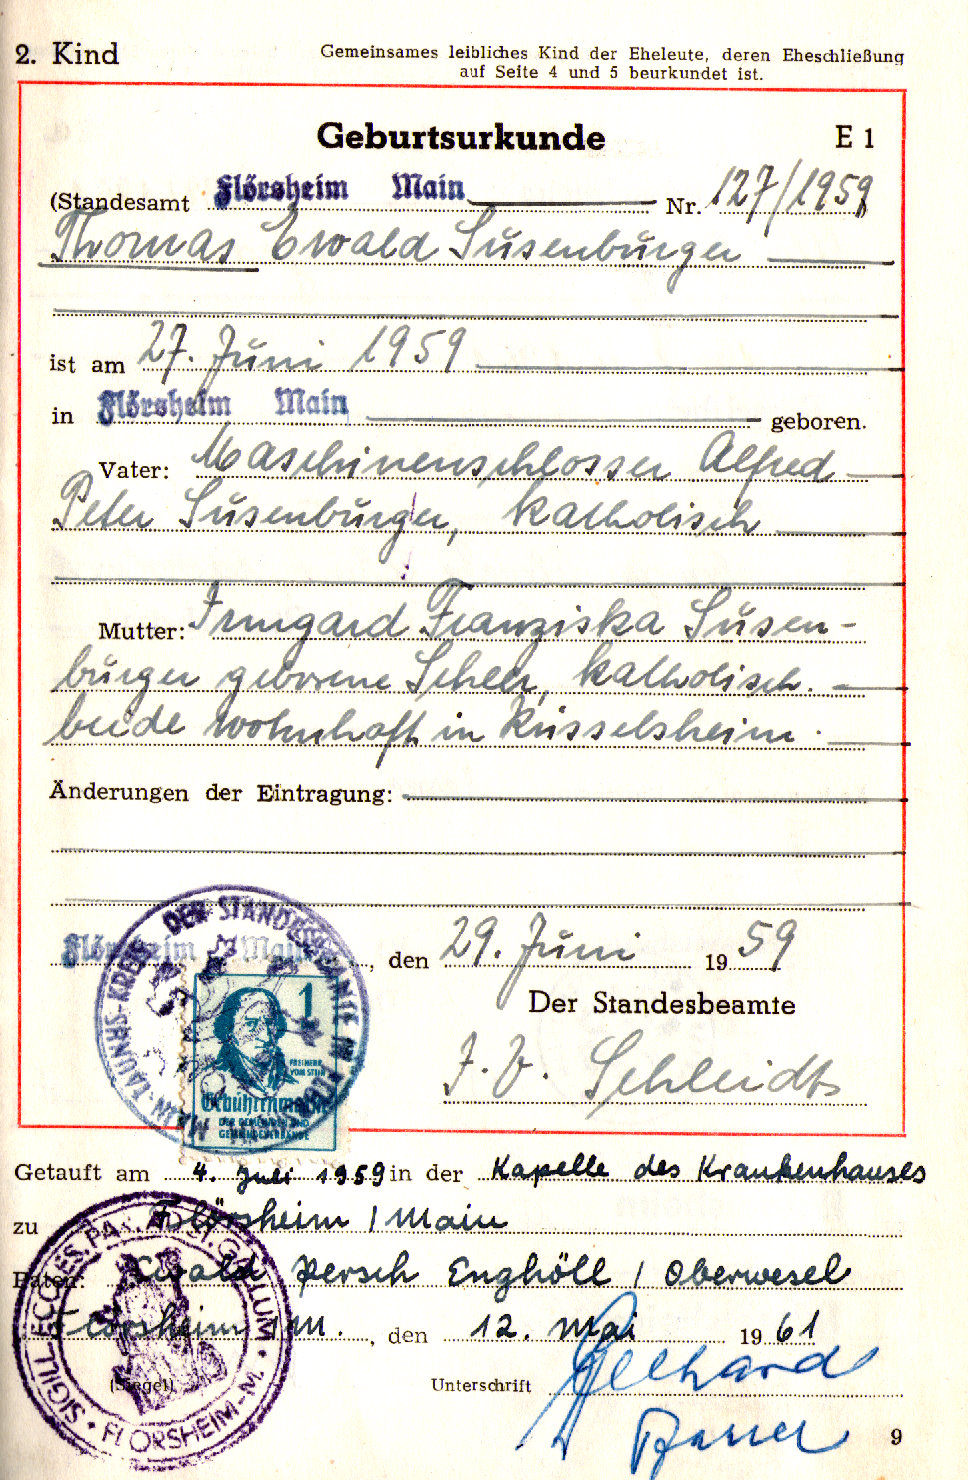 2. Kind
Gemeinsames leibliches Kind der Eheleute, deren Eheschließung
auf Seite 4 und 5 beurkundet ist.
Geburtsurkunde E 1
(Standesamt Flörsheim Main Nr. 127/1959
Thomas Ewald Susenburger
ist am 27. Juni 1959
in Flörsheim Main geboren.
Vater: Maschinenschlosser Alfred
Peter Susenburger, katholisch
Mutter: Irmgard Franziska Susen-
burger geborene Scheer, katholisch.
beide wohnhaft in Rüsselsheim.
Änderungen der Eintragung:
Flörsheim Main, den 29. Juni 1959
Der Standesbeamte
DER STANDESBEAMTE IN
MAIN-TAUNUS-KREIS
1
FREIHERR
VOM STEIN
Gebührenmarke
DER GEMEINDEN UND
GEMEINDEVERBÄNDE
J. V. Schleidt
Getauft am 4. Juli 1959 in der Kapelle des Krankenhauses
zu Flörsheim / Main
Paten: Ewald Persch Enghöll / Oberwesel
Flörsheim / M., den 12. Mai 1961
(Siegel) Unterschrift
SIGILL. ECCLES. PAR. AD ST. GALLUM
FLÖRSHEIM-M.
9